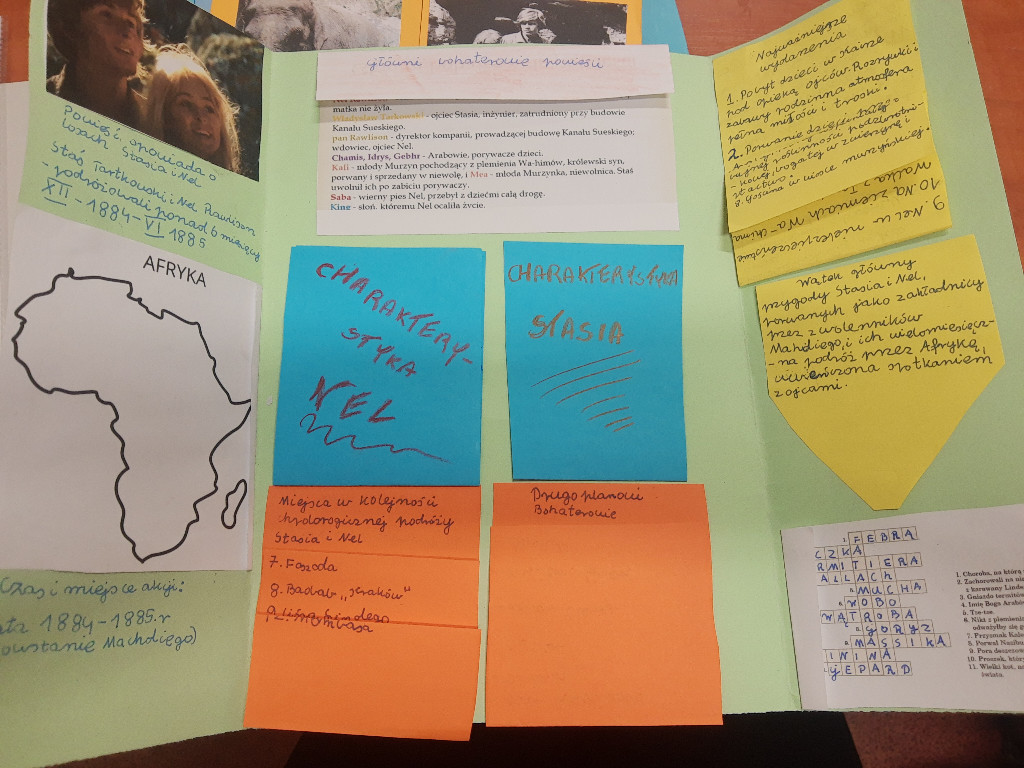 Powieść opowiada o
losach Stasia i Nel
Staś Tarkowski i Nel Rawlison
- podróżowali ponad 6 miesięcy
XII - 1884 - VI 1885
AFRYKA
Czas i miejsce akcji:
lata 1884-1885.r
powstanie Machdiego)
główni bohaterowie powieści
matka nie żyła.
Władysław Tarkowski - ojciec Stasia, inżynier, zatrudniony przy budowie
Kanału Sueskiego.
pan Rawlison - dyrektor kompanii, prowadzącej budowę Kanału Sueskiego;
wdowiec, ojciec Nel.
Chamis, Idrys, Gebhr - Arabowie, porywacze dzieci.
Kali - młody Murzyn pochodzący z plemienia Wa-himów, królewski syn,
porwany i sprzedany w niewolę, i Mea - młoda Murzynka, niewolnica. Staś
uwolnił ich po zabiciu porywaczy.
Saba - wierny pies Nel, przebył z dziećmi całą drogę.
King - słoń, któremu Nel ocaliła życie.
CHARAKTERY-
STYKA
NEL
CHARAKTERYSTYKA
STASIA
Miejsca w kolejności
chrdorogicznej podróży
Stasia i Nel
7. Faszoda
8. Baobab „Kraków"
Drugoplanowi
Bohaterowie
Najważniejsze
wydarzenia
1. Pobyt dzieci w Kairze
pod opieką ojców. Rozrywki i
zabawy rodzinna atmosfera
pełna miłości i troski.
2. Porwanie
8. Gościna w wiosce murzyńskiej.
9. Nel w
niebezpieczeństwie
10. Na ziemiach Wa-hima
Wątek główny
przygody Stasia i Nel,
porwanych jako zakładnicy
przez zwolenników
Mahdiego, i ich wielomiesięcz-
-na podróż przez Afrykę,
uwieńczona spotkaniem
z ojcami.
FEBRA
CZKA
RMITIERA
ALLACH
MUCHA
WOBO
WĄTROBA
GORYZ
MASSIKA
ININA
GEPARD
1. Choroba, na którą
2. Zachorowali na nią
z karawany Linde
3. Gniazdo termitów
4. Imię Boga Arabów
5. Tse-tse
6. Nikt z plemienia
odważyłby się
7. Przysmak
8. Porwał
9. Pora deszczowa
10. Proszek, któr
11. Wielki kot,
świata.